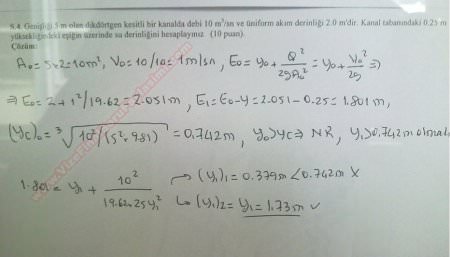 S.4. Genişliği 5 m olan dikdörtgen kesitli bir kanalda debi 10 m³/sn ve üniform akım derinliği 2.0 m'dir. Kanal tabanındaki 0.25 m
yüksekliğindeki eşiğin üzerinde su derinliğini hesaplayınız. (10 puan).
Çözüm:
A₀=5x2=10m², V₀=10/10=1m/sn, E₀=y₀+Q²/2gA₀²=y₀+V₀²/2g ⇒
⇒ E₀=2+1²/19.62=2.051m, E₁=E₀-y=2.051-0.25=1.801m,
(yc)₀=³√10²/(5².9.81)=0.742m, y₀>yc⇒NR, y₁>0.742m olmalı
1.801=y₁+10²/19.62.25y₁² → (y₁)₁=0.379m<0.742m X
↳ (y₁)₂=y₁=1.73m ✓